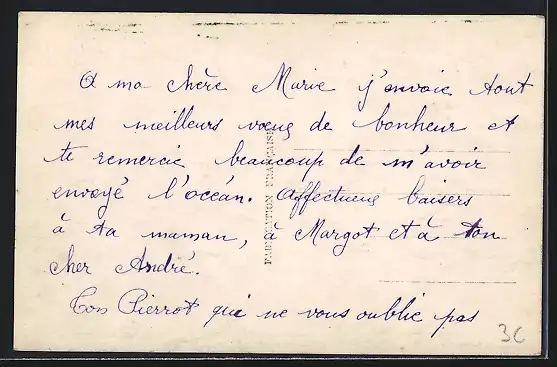 A ma chère Marie j'envoie tout
mes meilleurs vœux de bonheur et
te remercie beaucoup de m'avoir
envoyé l'océan. Affectueux baisers
à ta maman, à Margot et à ton
cher André.
Ton Pierrot qui ne vous oublie pas
FABRICATION FRANÇAISE
3€